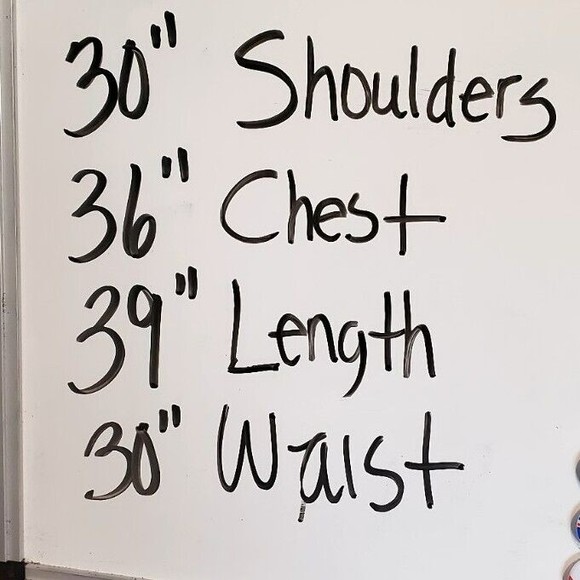 30" Shoulders
36" Chest
39" Length
30" Waist